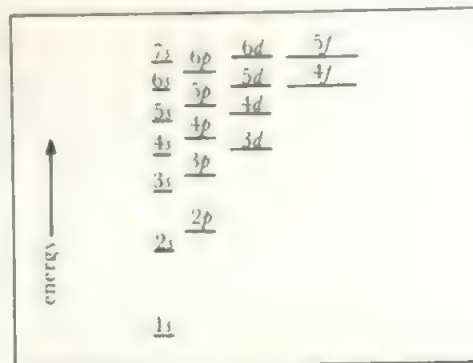 7s 6p 6d 5f
6s 5p 5d 4f
5s 4p 4d
4s 3p 3d
3s
2p
2s
1s
energy